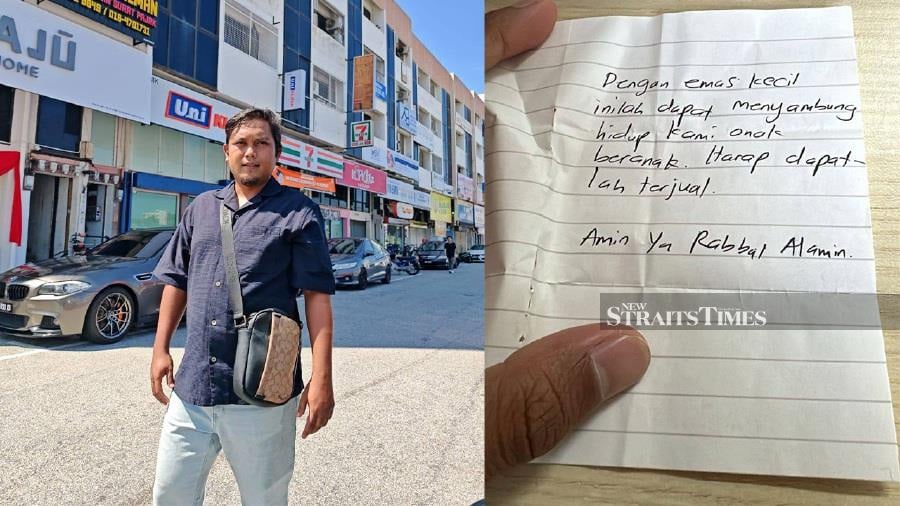 SURAT PAJAK
016-4701731
AJŪ
HOME
Uni
7
7-ELEVEN
Dengan emas kecil
inilah dapat menyambung
hidup kami anak
beranak. Harap dapat-
lah terjual.
Amin Ya Rabbal Alamin.
NEW
STRAITS TIMES